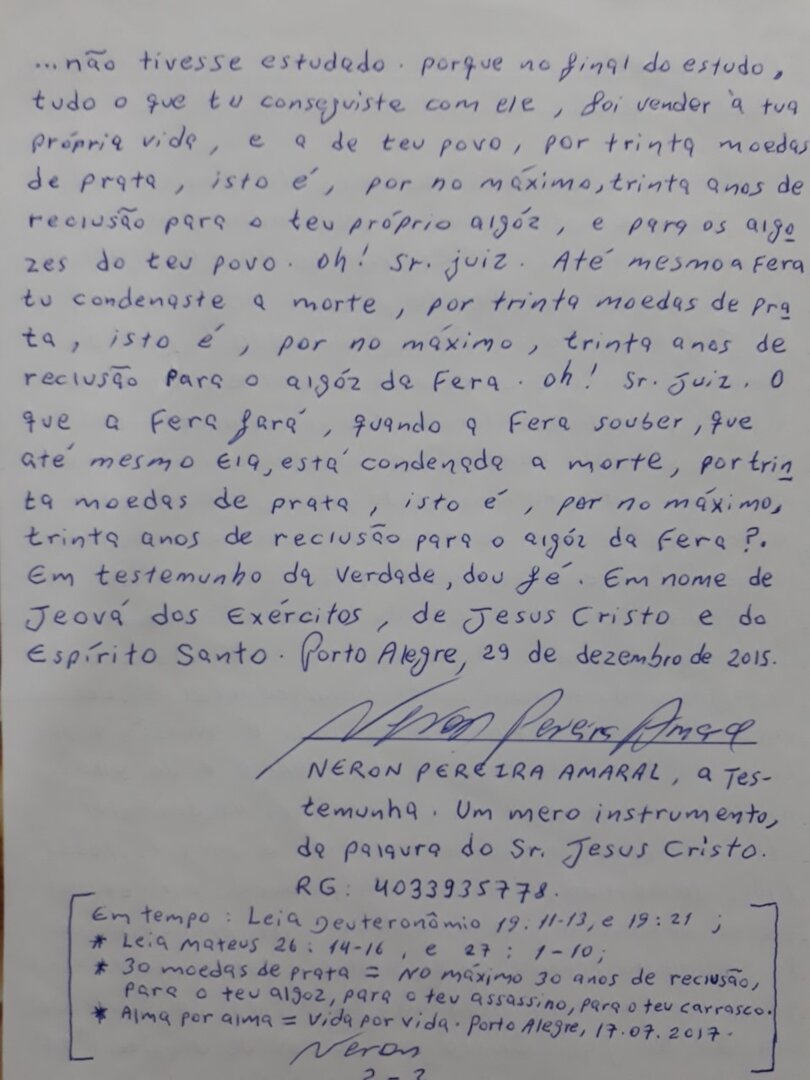 ...não tivesse estudado. porque no final do estudo,
tudo o que tu conseguiste com ele, foi vender à tua
própria vida, e a de teu povo, por trinta moedas
de prata, isto é, por no máximo, trinta anos de
reclusão para o teu próprio algóz, e para os algo
zes do teu povo. oh! Sr. juiz. Até mesmo a Fera
tu condenaste a morte, por trinta moedas de pra
ta, isto é, por no máximo, trinta anos de
reclusão para o algóz da Fera. oh! Sr. juiz. O
que a Fera fará, quando a Fera souber, que
até mesmo Ela, está condenada a morte, por trin
ta moedas de prata, isto é, por no máximo,
trinta anos de reclusão para o algóz da Fera?.
Em testemunho da verdade, dou fé. Em nome de
Jeová dos Exércitos, de Jesus Cristo e do
Espírito Santo. Porto Alegre, 29 de dezembro de 2015.
Neron Pereira Amaral
NERON PEREIRA AMARAL, a Tes-
temunha. Um mero instrumento,
da palavra do Sr. Jesus Cristo.
RG: 4033935778.
Em tempo: Leia Deuteronômio 19:11-13, e 19:21;
* Leia Mateus 26:14-16, e 27:1-10;
* 30 moedas de prata = No máximo 30 anos de reclusão,
para o teu algoz, para o teu assassino, para o teu carrasco.
* Alma por alma = vida por vida. Porto Alegre, 17.07.2017.
Neron